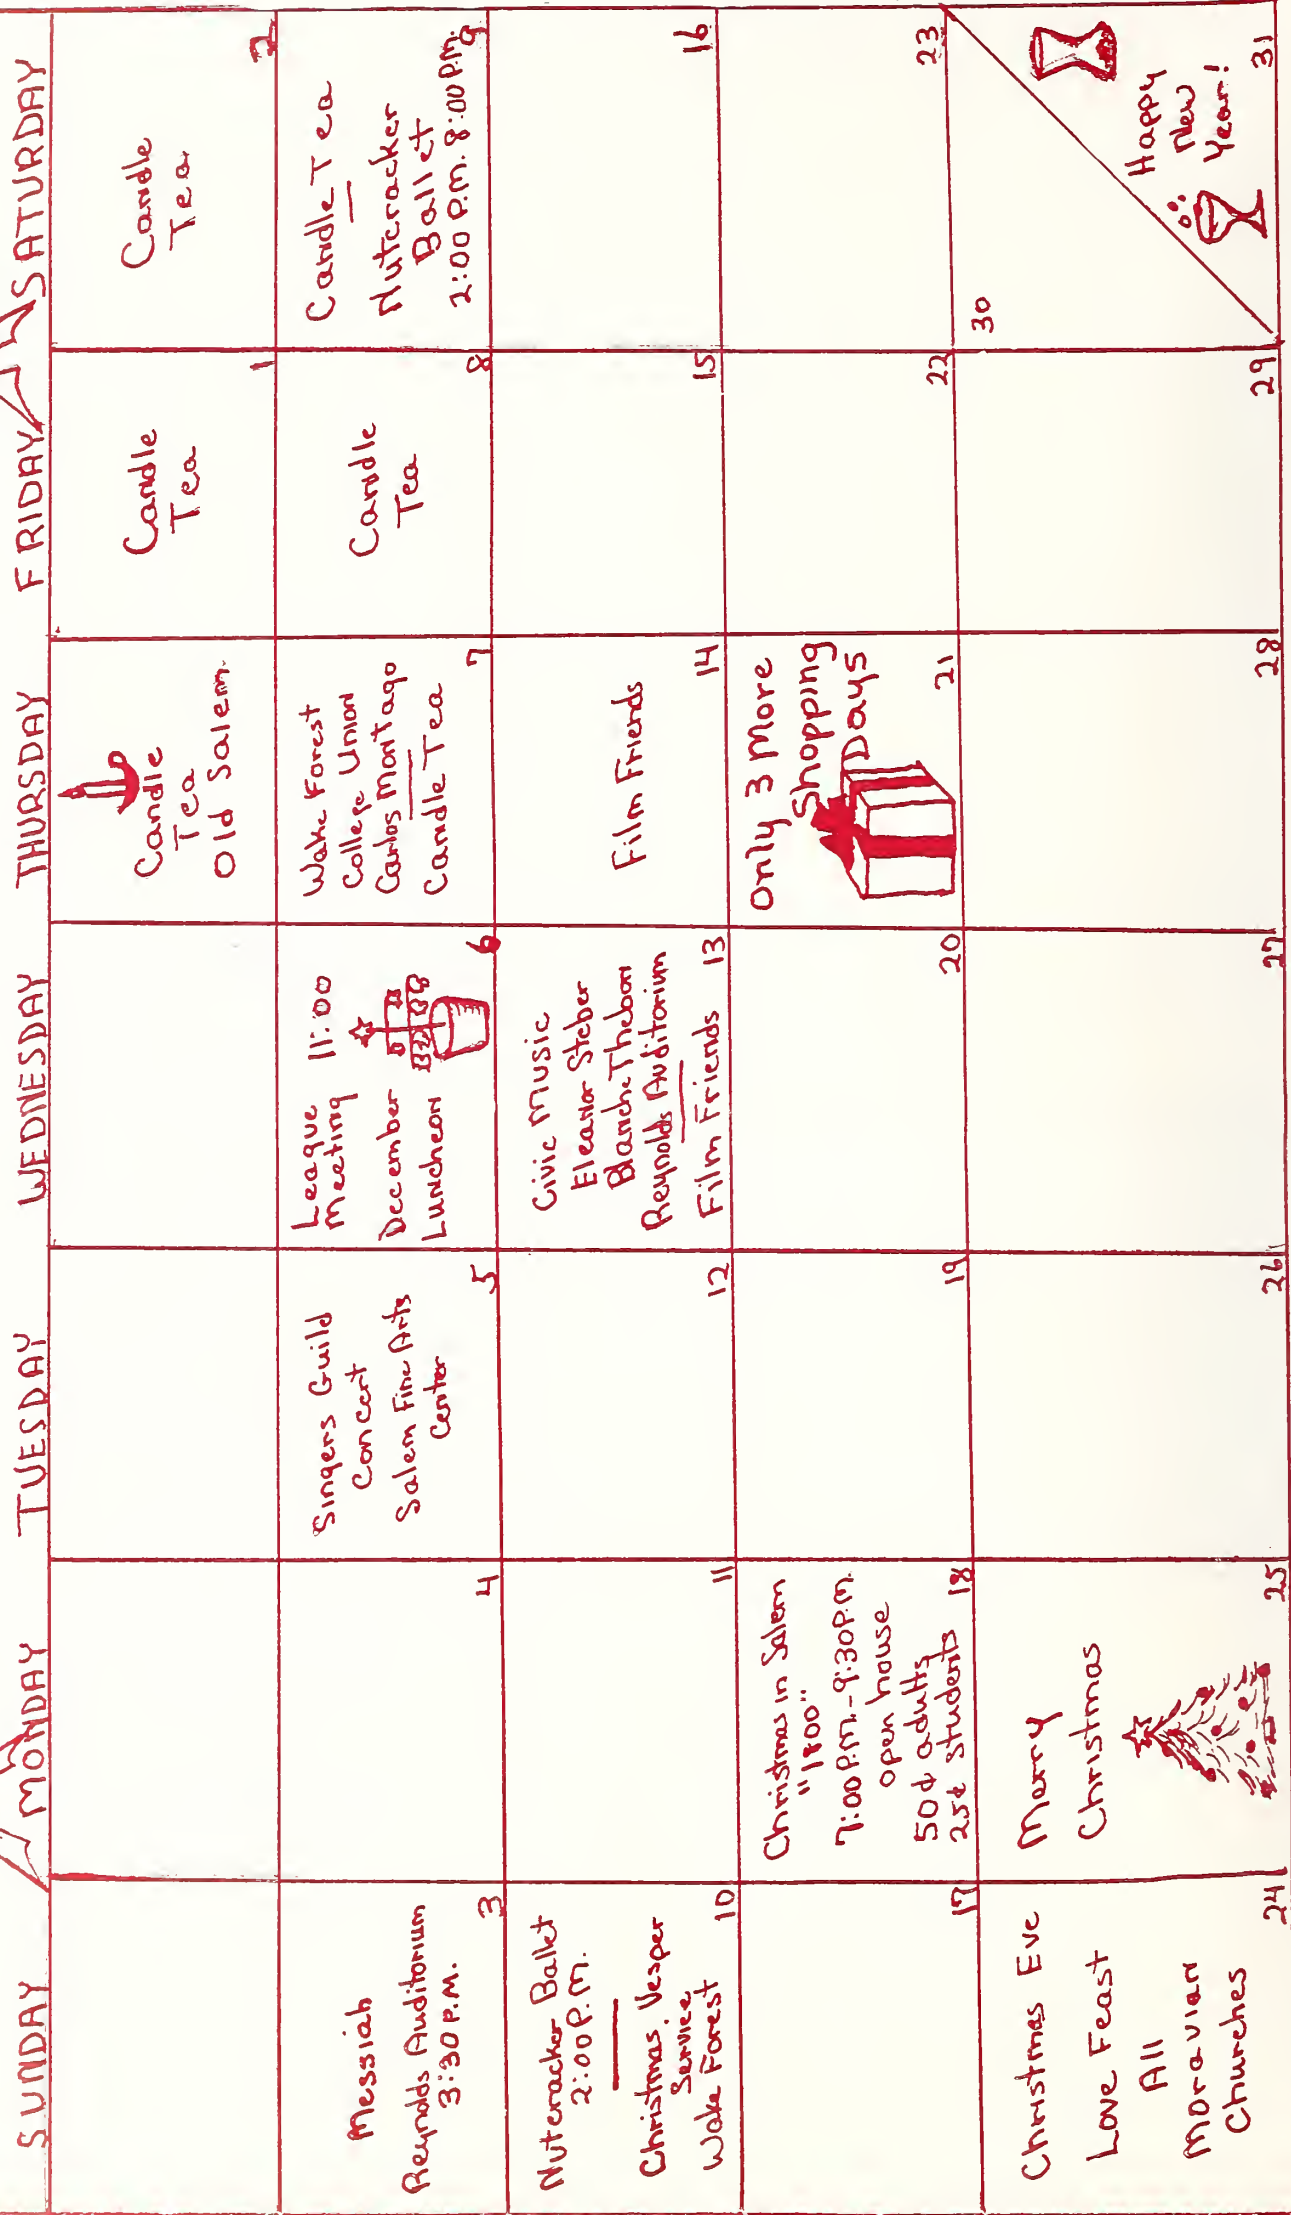 SUNDAY MONDAY TUESDAY WEDNESDAY THURSDAY FRIDAY SATURDAY
Candle
Tea
Old Salem
Candle
Tea
1
Candle
Tea
2
Messiah
Reynolds Auditorium
3:30 P.M.
3
4
Singers Guild
Concert
Salem Fine Arts
Center
5
League 11:00
Meeting
December
Luncheon
6
Wake Forest
College Union
Carlos Montago
Candle Tea
7
Candle
Tea
8
Candle Tea
Nutcracker
Ballet
2:00 P.M. 8:00 P.M.
9
Nutcracker Ballet
2:00 P.M.
Christmas Vesper
Service
Wake Forest
10
11
12
Civic Music
Eleanor Steber
Blanche Thebom
Reynolds Auditorium
Film Friends
13
Film Friends
14
15
16
17
Christmas in Salem
"1800"
7:00 P.M.-9:30 P.M.
open house
50¢ adults
25¢ students
18
19
20
Only 3 More
Shopping
Days
21
22
23
Christmas Eve
Love Feast
All
Moravian
Churches
24
Merry
Christmas
25
26
27
28
29
30
Happy
New
Year!
31